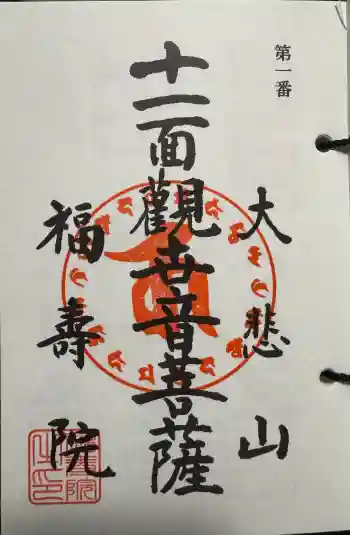 第一番
大悲山
十一面觀世音菩薩
福壽院